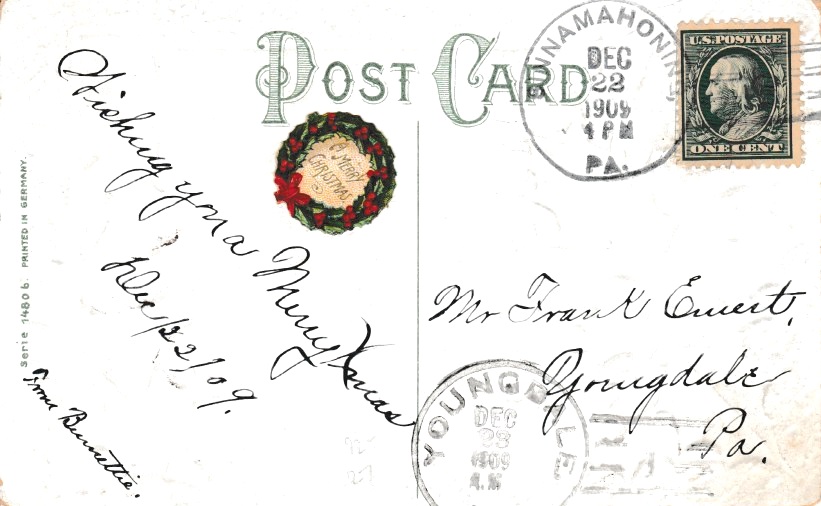 POST CARD
SINNAMAHONING
DEC
22
1909
4 PM
PA.
U.S. POSTAGE
ONE CENT
A MERRY
CHRISTMAS
Wishing you a Merry Xmas
Dec/22/09.
From Burnettie.
Serie 1480 b. PRINTED IN GERMANY.
Mr Frank Emert,
Youngdale
Pa.
YOUNGDALE
DEC
23
1909
A.M.